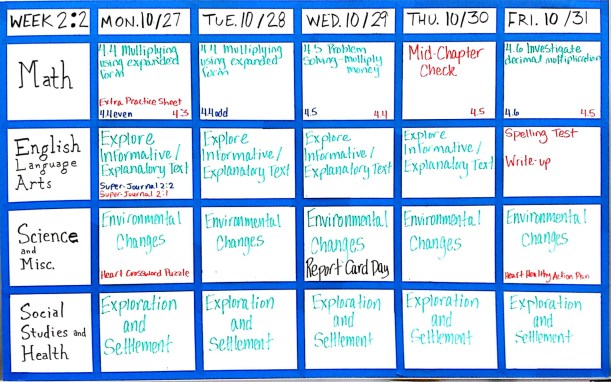 WEEK 2:2 MON.10/27 TUE.10/28 WED.10/29 THU.10/30 FRI.10/31
Math
4.4 Multiplying
using expanded
form
Extra Practice Sheet
4.4even 4.3
4.4 Multiplying
using expanded
form
4.4odd
4.5 Problem
Solving-Multiply
money
4.5 4.4
Mid-Chapter
Check
4.5
4.6 Investigate
decimal multiplication
4.6 4.5
English
Language
Arts
Explore
Informative/
Explanatory Text
Super-Journal 2:2
Super-Journal 2:1
Explore
Informative/
Explanatory Text
Explore
Informative/
Explanatory Text
Explore
Informative/
Explanatory Text
Spelling Test
Write-up
Science
and
Misc.
Environmental
Changes
Heart Crossword Puzzle
Environmental
Changes
Environmental
Changes
Report Card Day
Environmental
Changes
Environmental
Changes
Heart Healthy Action Plan
Social
Studies and
Health
Exploration
and
Settlement
Exploration
and
Settlement
Exploration
and
Settlement
Exploration
and
Settlement
Exploration
and
Settlement